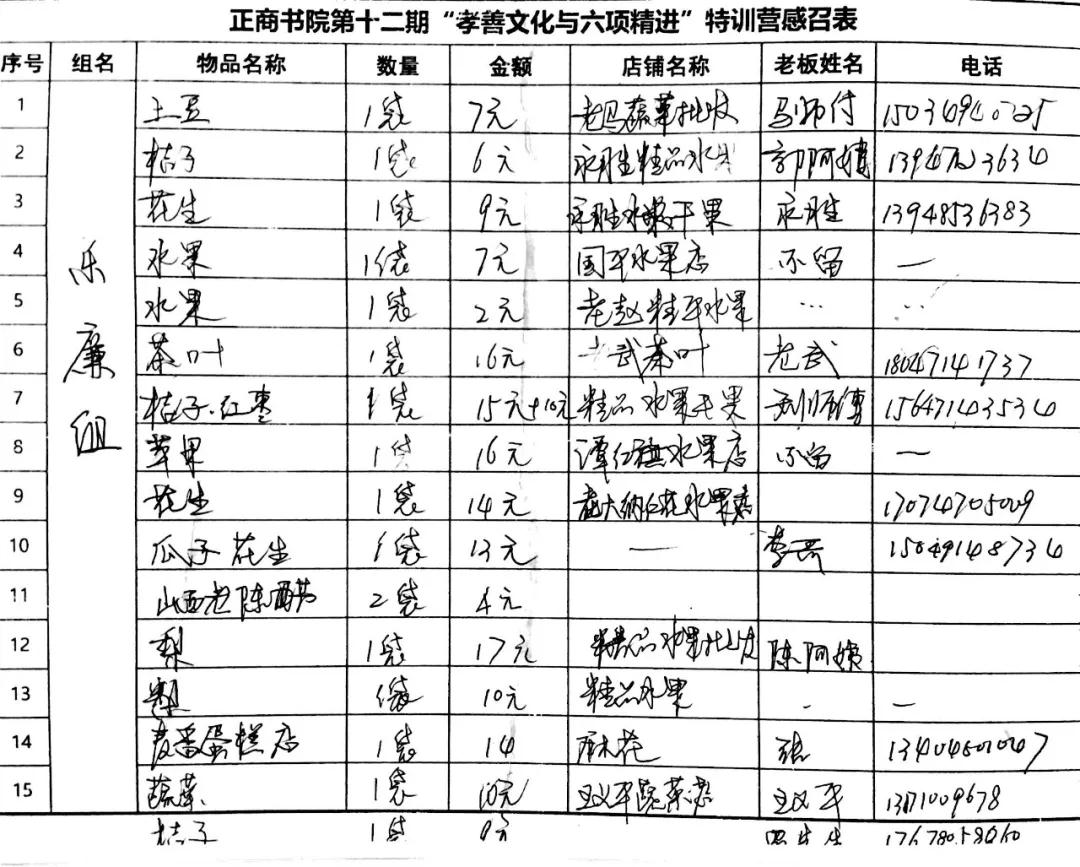 正商书院第十二期“孝善文化与六项精进”特训营感召表
序号 组名 物品名称 数量 金额 店铺名称 老板姓名 电话
乐廉组
1 土豆 1袋 7元 老马蔬菜批发 马师付
2 桔子 1袋 6元 永胜精品水 郭阿姨
3 花生 1袋 9元 永胜水果干果 永胜 13948536383
4 水果 1袋 7元 国平水果店 不留 —
5 水果 1袋 2元 老赵精平水果 … …
6 茶叶 1袋 16元 老武茶叶 老武 18047141737
7 桔子.红枣 1袋 15元+10元 精品水果干果 15647143534
8 苹果 1袋 16元 谭红旗水果店 不留 —
9 花生 1袋 14元 水果店 17074705009
10 瓜子 花生 1袋 13元 — 李 15049148734
11 山西老陈醋 2袋 4元
12 梨 1袋 17元 精品水果批发 陈阿姨
13 梨 1袋 10元 精品水果 - —
14 麦香蛋糕店 1袋 14 麻花 张
15 蔬菜 1袋 10元 王义平蔬菜店 王义平
桔子 1袋 9元